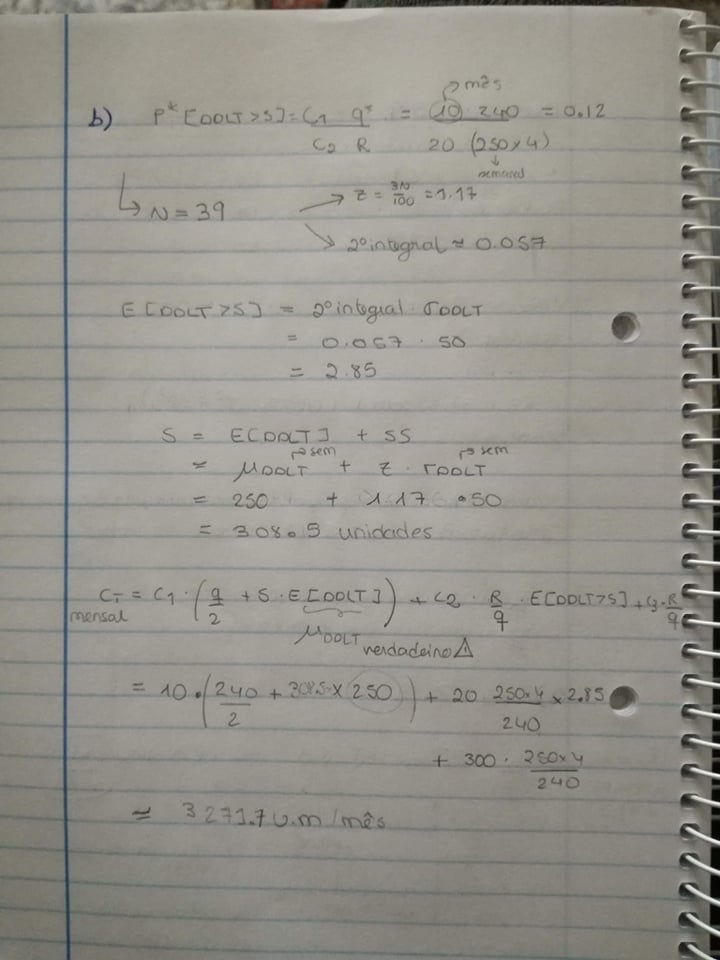 b) P* [DDLT > S] = C1 q* / C2 R = 10 · 240 / 20 (250 x 4) = 0.12
mês
semanal
↳ N = 39 → Z = 3N/100 = 1.17
↘ 2º integral ≈ 0.057
E [DDLT > S] = 2º integral · σDDLT
= 0.057 · 50
= 2.85
S = E[DDLT] + SS
= μDDLT + Z · σDDLT
sem sem
= 250 + 1.17 • 50
= 308.5 unidades
CT = C1 · (q/2 + S · E[DDLT]) + C2 · R/q · E[DDLT>S] + C3 · R/q
mensal
μDDLT verdadeiro ⚠
= 10 • (240/2 + 308.5 x 250) + 20 250x4/240 x 2.85
+ 300 · 250x4/240
≈ 3271.7 u.m /mês